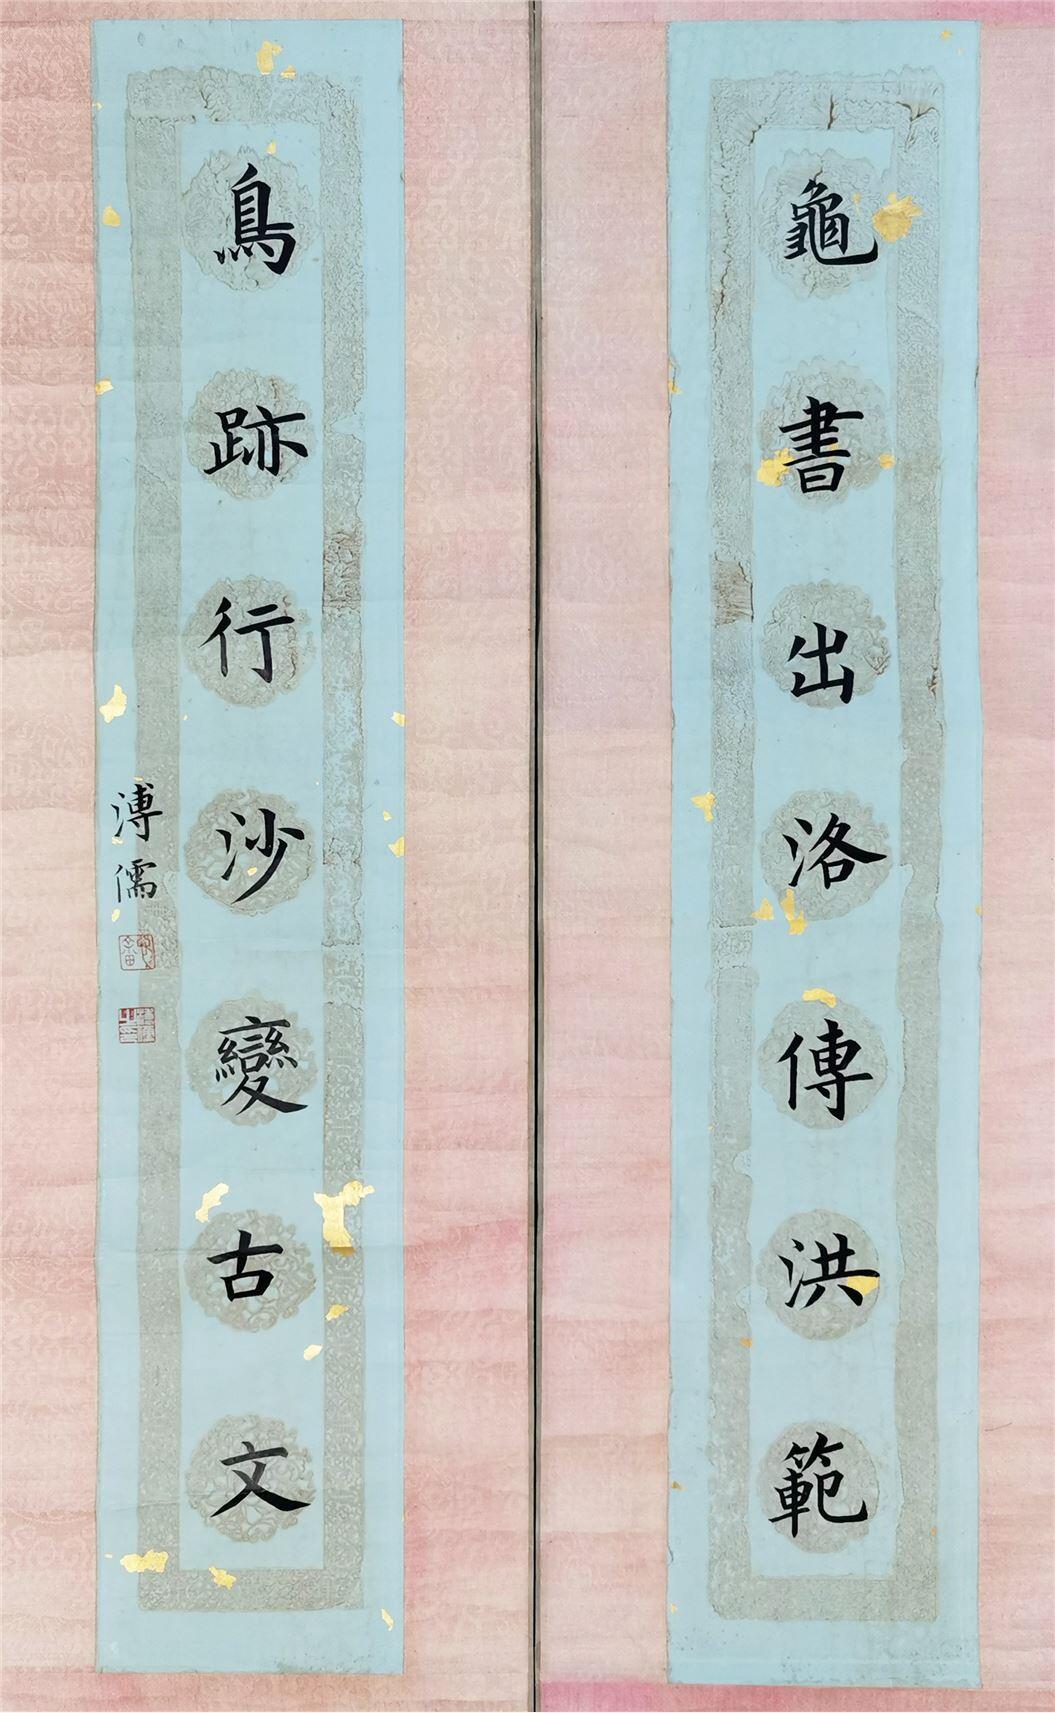 龜書出洛傳洪範
鳥跡行沙變古文
溥儒